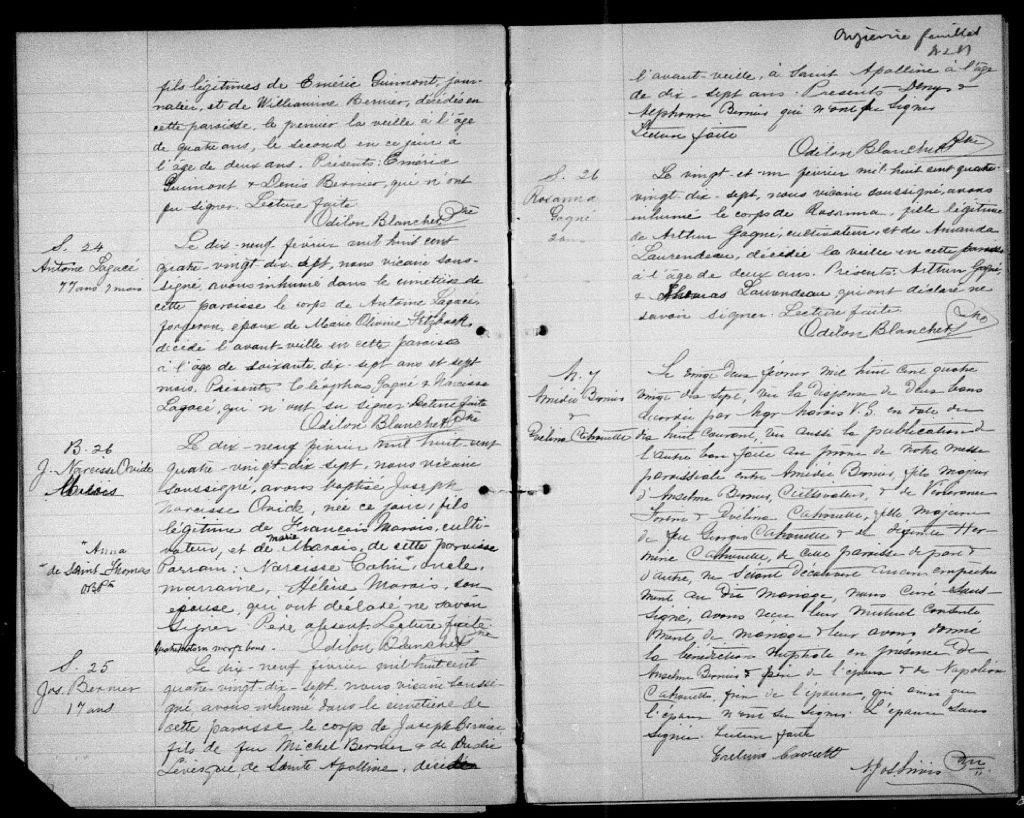 fils légitimes de Eméric Guimont, jour-
nalier, et de Williamine Bernier, décédés en
cette paroisse, le premier la veille à l'âge
de quatre ans, le second en ce jour à
l'âge de deux ans. Présents: Eméric
Guimont & Denis Bernier, qui n'ont
pu signer. Lecture faite
Odilon Blanchet Ptre
S. 24
Antoine Lagacé
77 ans 7 mois
Le dix-neuf février mil huit cent
quatre-vingt dix sept, nous vicaire sous-
signé, avons inhumé dans le cimetière de
cette paroisse le corps de Antoine Lagacé,
forgeron, époux de Marie Olivine
décédé l'avant-veille en cette paroisse
à l'âge de soixante-dix-sept ans et sept
mois. Présents Cléophas Gagné & Narcisse
Lagacé, qui n'ont su signer. Lecture faite
Odilon Blanchet Ptre
B. 26
J. Narcisse Ovide
Marois
"Anna
de Saint Thomas
Le dix-neuf février mil huit cent
quatre-vingt-dix sept, nous vicaire
soussigné, avons baptisé Joseph
Narcisse Ovide, née ce jour, fils
légitime de François Marois, culti-
vateur, et de Marie Marois, de cette paroisse
Parrain: Narcisse "Cahu", oncle,
marraine, Hélène Marois, son
épouse, qui ont déclaré ne savoir
signer Père absent. Lecture faite
mots bons. Odilon Blanchet Ptre
S. 25
Jos. Bernier
17 ans
Le dix-neuf février mil huit cent
quatre-vingt-dix-sept, nous vicaire soussi-
gné, avons inhumé dans le cimetière de
cette paroisse le corps de Joseph Bernier
fils de feu Michel Bernier & de Dudie
Lévesque de Sainte Apolline, décédé
Onzième feuillet
l'avant-veille, à Saint Apolline à l'âge
de dix-sept ans. Présents Denys &
Alphonse Bernier qui n'ont pu signer
Lecture faite
Odilon Blanchet Ptre
S. 26
Rosanna
Gagné
2 an
Le vingt-et-un février mil huit cent quatre-
vingt dix-sept, nous vicaire soussigné, avons
inhumé le corps de Rosanna, fille légitime
de Arthur Gagné, cultivateur, et de Amanda
Laurendeau, décédée la veille en cette paroisse
à l'âge de deux ans. Présents: Arthur Gagné,
& Thomas Laurendeau, qui ont déclaré ne
savoir signer. Lecture faite.
Odilon Blanchet Ptre
M. 7
Amédée Bernier
&
Evelina Cahouette
Le vingt deux février mil huit cent quatre
vingt dix sept, vu la dispense de deux bans
accordée par Mgr Marois V.G. en date du
dix huit courant, vu aussi la publication de
l'autre ban faite au prone de notre messe
paroissiale entre Amédée Bernier, fils majeur
d'Anselme Bernier, Cultivateur, & de Vénérance
& Evelina Cahouette, fille majeure
de feu Georges Cahouette & de défunte Her-
mine Cahouette, de cette paroisse de part &
d'autre, ne s'étant découvert aucun empêche
ment au dit mariage, nous curé sous-
signé, avons reçu leur mutuel consente
ment de mariage & leur avons donné
la bénédiction nuptiale en présence de
Anselme Bernier & père de l'époux & de Napoléon
Cahouette, frère de l'épouse, qui ainsi que
l'époux n'ont su signer. L'épouse sans
signer. Lecture faite
Evelina Caouette
Ptre